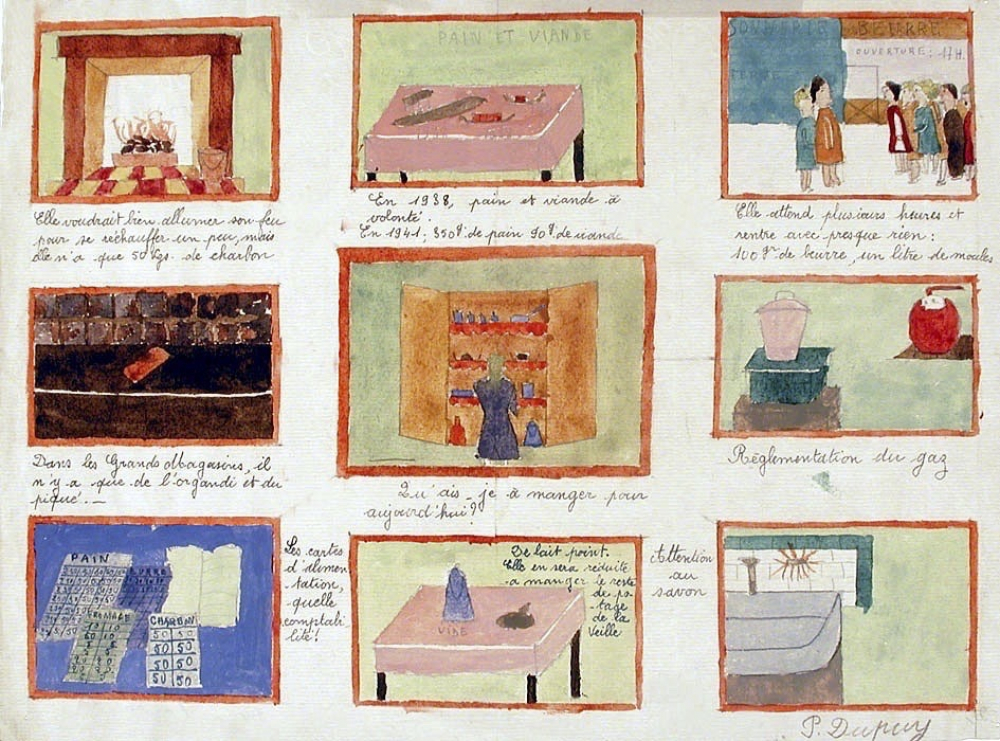 Elle voudrait bien allumer son feu
pour se réchauffer un peu, mais
elle n'a que 50 kgs. de charbon
PAIN ET VIANDE
En 1938, pain et viande à
volonté.
En 1941: 350g. de pain 90g. de viande
BEURRE
OUVERTURE: 17 H.
Elle attend plusieurs heures et
rentre avec presque rien:
100gr. de beurre, un litre de moules
Dans les Grands Magasins, il
n'y a que de l'organdi et du
piqué. _
Qu'ais-je à manger pour
aujourd'hui?
Règlementation du gaz
PAIN
FROMAGE
CHARBON
50 50
50 50
50 50
50 50
Les cartes
d'alimen
tation,
quelle
comptabi
lité!
De lait point.
Elle en sera réduite
a manger le reste
de po-
tage
de la
veille
VIDE
Attention
au
savon
P. Dupuy